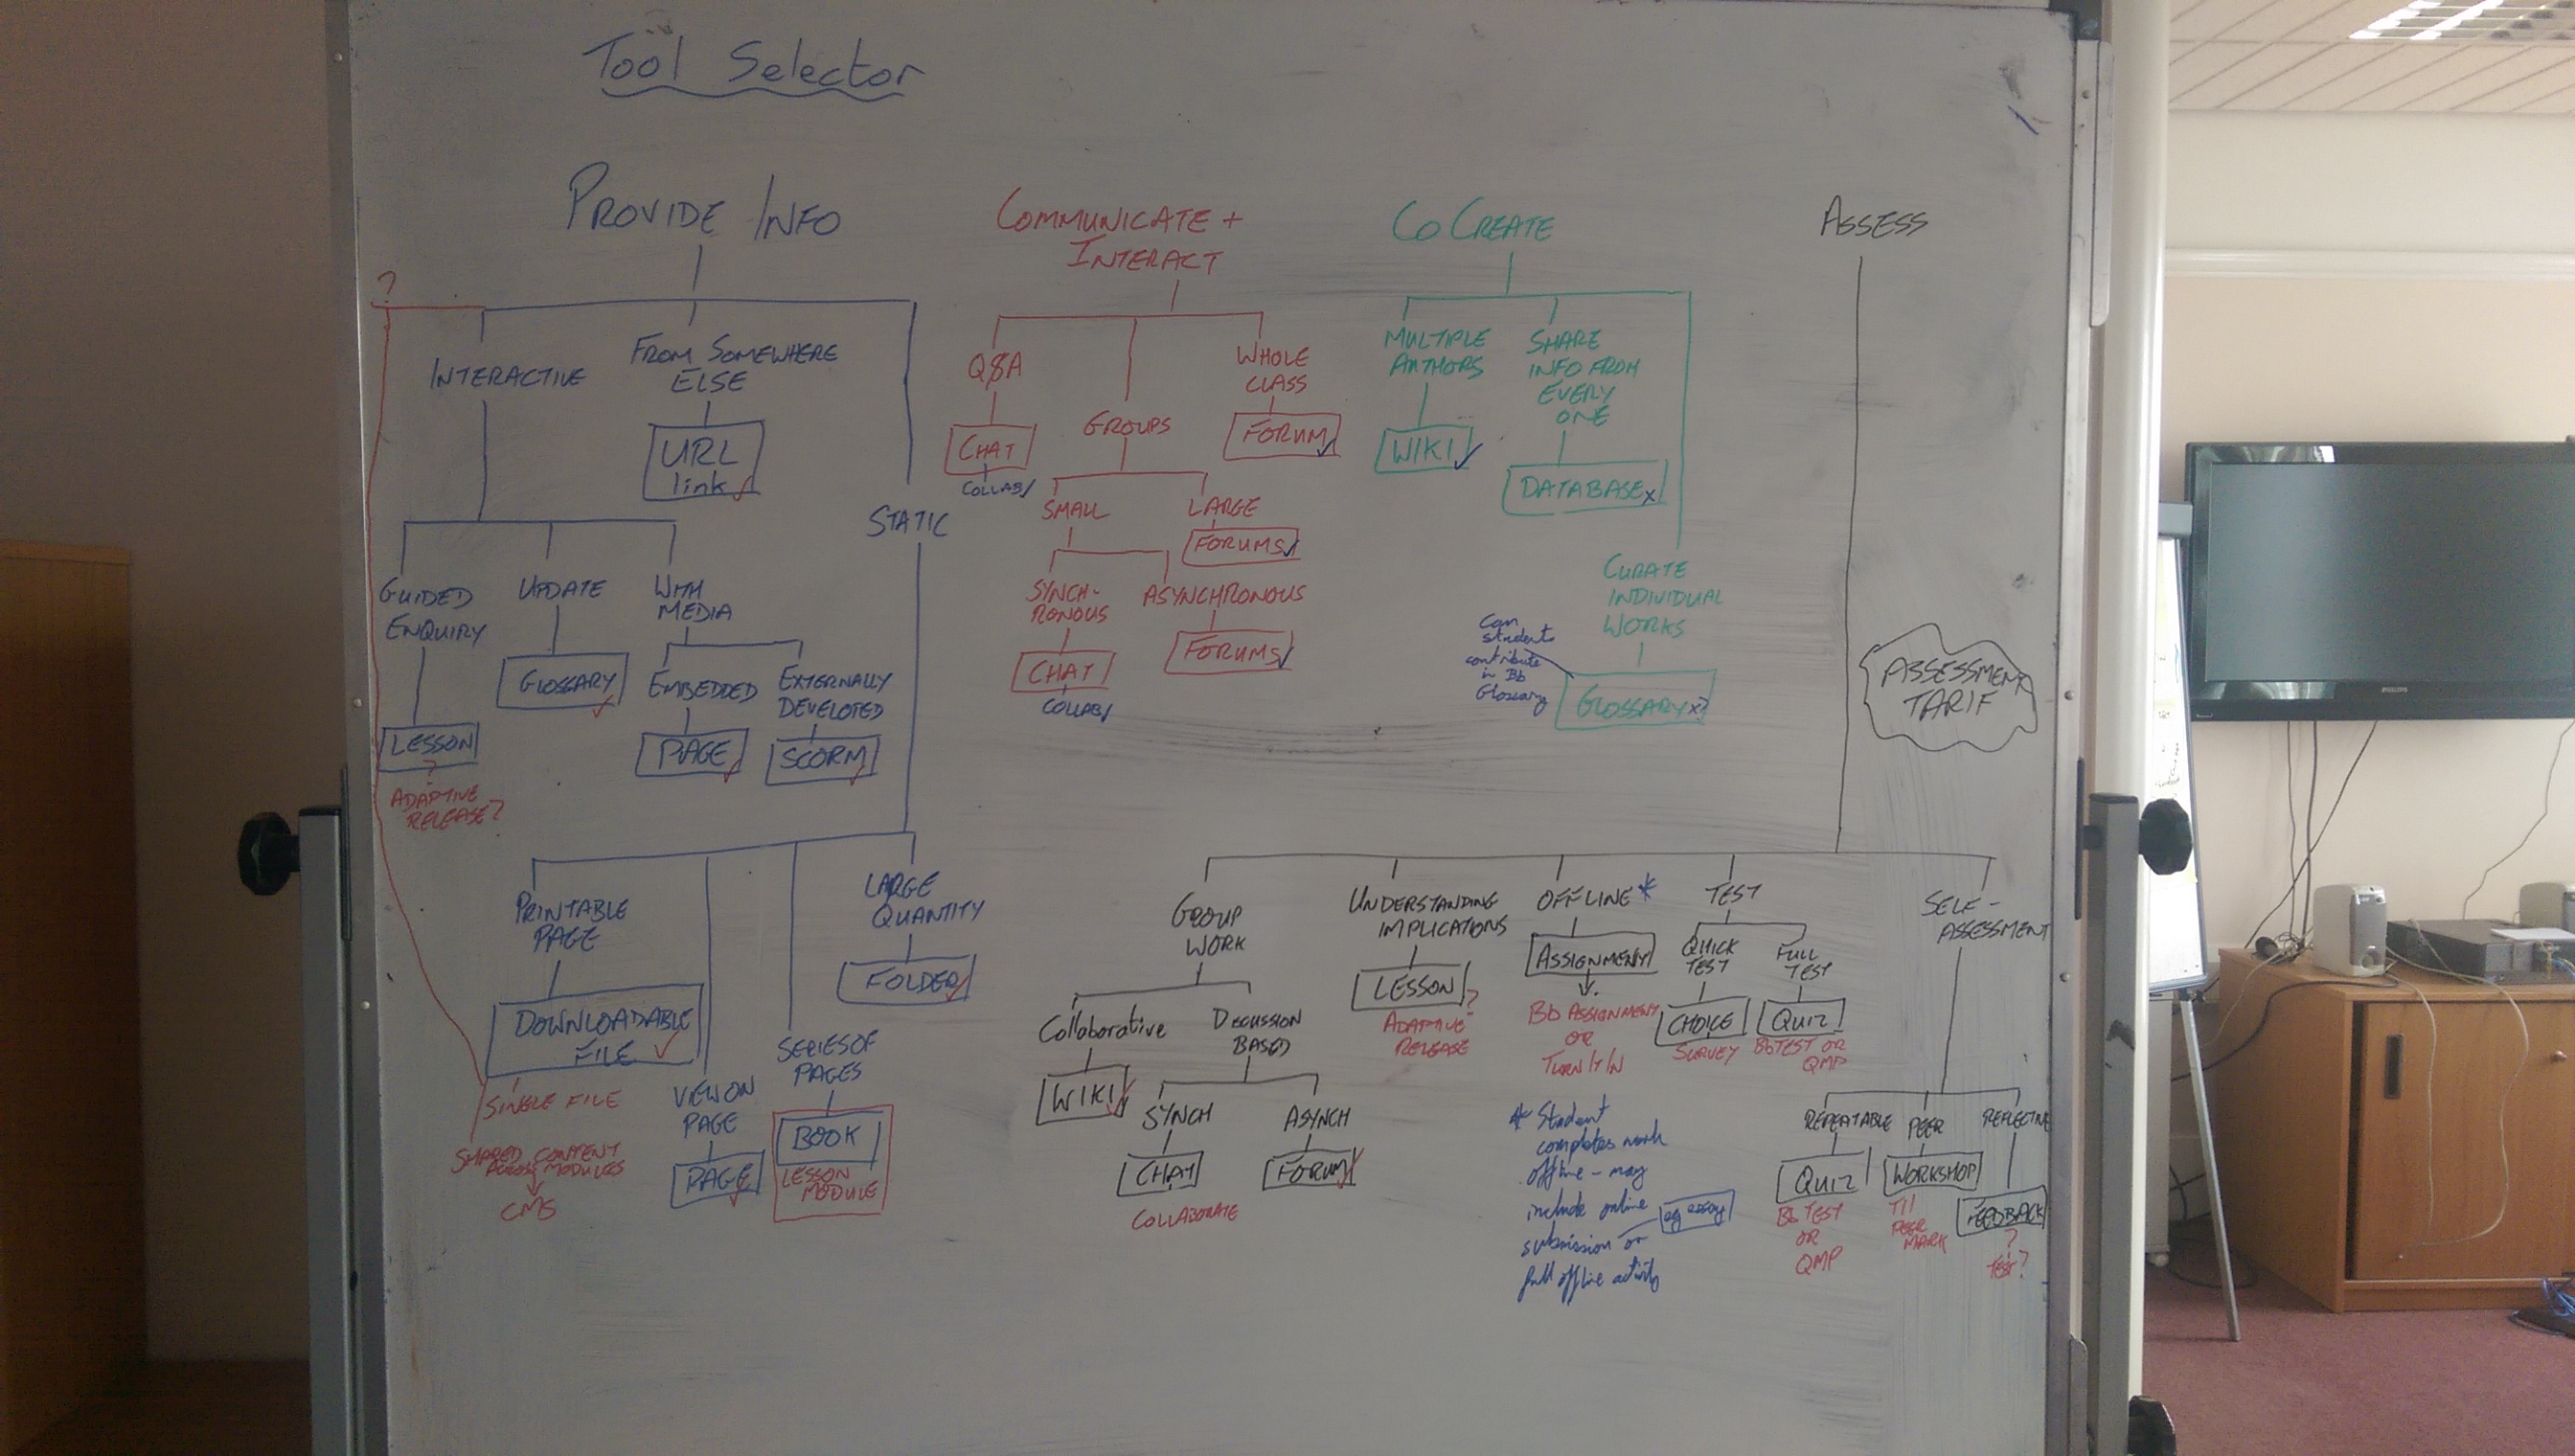 Tool Selector
PROVIDE INFO
?
INTERACTIVE
FROM SOMEWHERE
ELSE
URL
link
STATIC
GUIDED
ENQUIRY
LESSON
?
ADAPTIVE
RELEASE?
UPDATE
GLOSSARY
WITH
MEDIA
EMBEDDED
PAGE
EXTERNALLY
DEVELOPED
SCORM
PRINTABLE
PAGE
DOWNLOADABLE
FILE
SINGLE FILE
SHARED CONTENT
ACROSS MODULES
CMS
VIEW ON
PAGE
PAGE
SERIES OF
PAGES
BOOK
LESSON
MODULE
LARGE
QUANTITY
FOLDER
COMMUNICATE +
INTERACT
Q&A
CHAT
COLLAB
GROUPS
WHOLE
CLASS
FORUM
SMALL
LARGE
FORUMS
SYNCH-
RONOUS
CHAT
COLLAB
ASYNCHRONOUS
FORUMS
CO CREATE
MULTIPLE
AUTHORS
WIKI
SHARE
INFO FROM
EVERY
ONE
DATABASE x
CURATE
INDIVIDUAL
WORKS
GLOSSARY x?
Can
students
contribute
in Bb
Glossary
ASSESS
ASSESSMENT
TARIF
GROUP
WORK
Collaborative
WIKI
DISCUSSION
BASED
SYNCH
CHAT
COLLABORATE
ASYNCH
FORUM
UNDERSTANDING
IMPLICATIONS
LESSON ?
ADAPTIVE
RELEASE
OFFLINE *
ASSIGNMENT
Bb ASSIGNMENT
OR
TURNITIN
* Student
completes work
offline - may
include online
eg essay
submission or
full offline activity
TEST
QUICK
TEST
CHOICE
SURVEY
FULL
TEST
QUIZ
Bb TEST OR
QMP
SELF-
ASSESSMENT
REPEATABLE
QUIZ
Bb TEST
OR
QMP
PEER
WORKSHOP
TII
PEER
MARK
REFLECTIVE
FEEDBACK
?
TEST?
PHILIPS